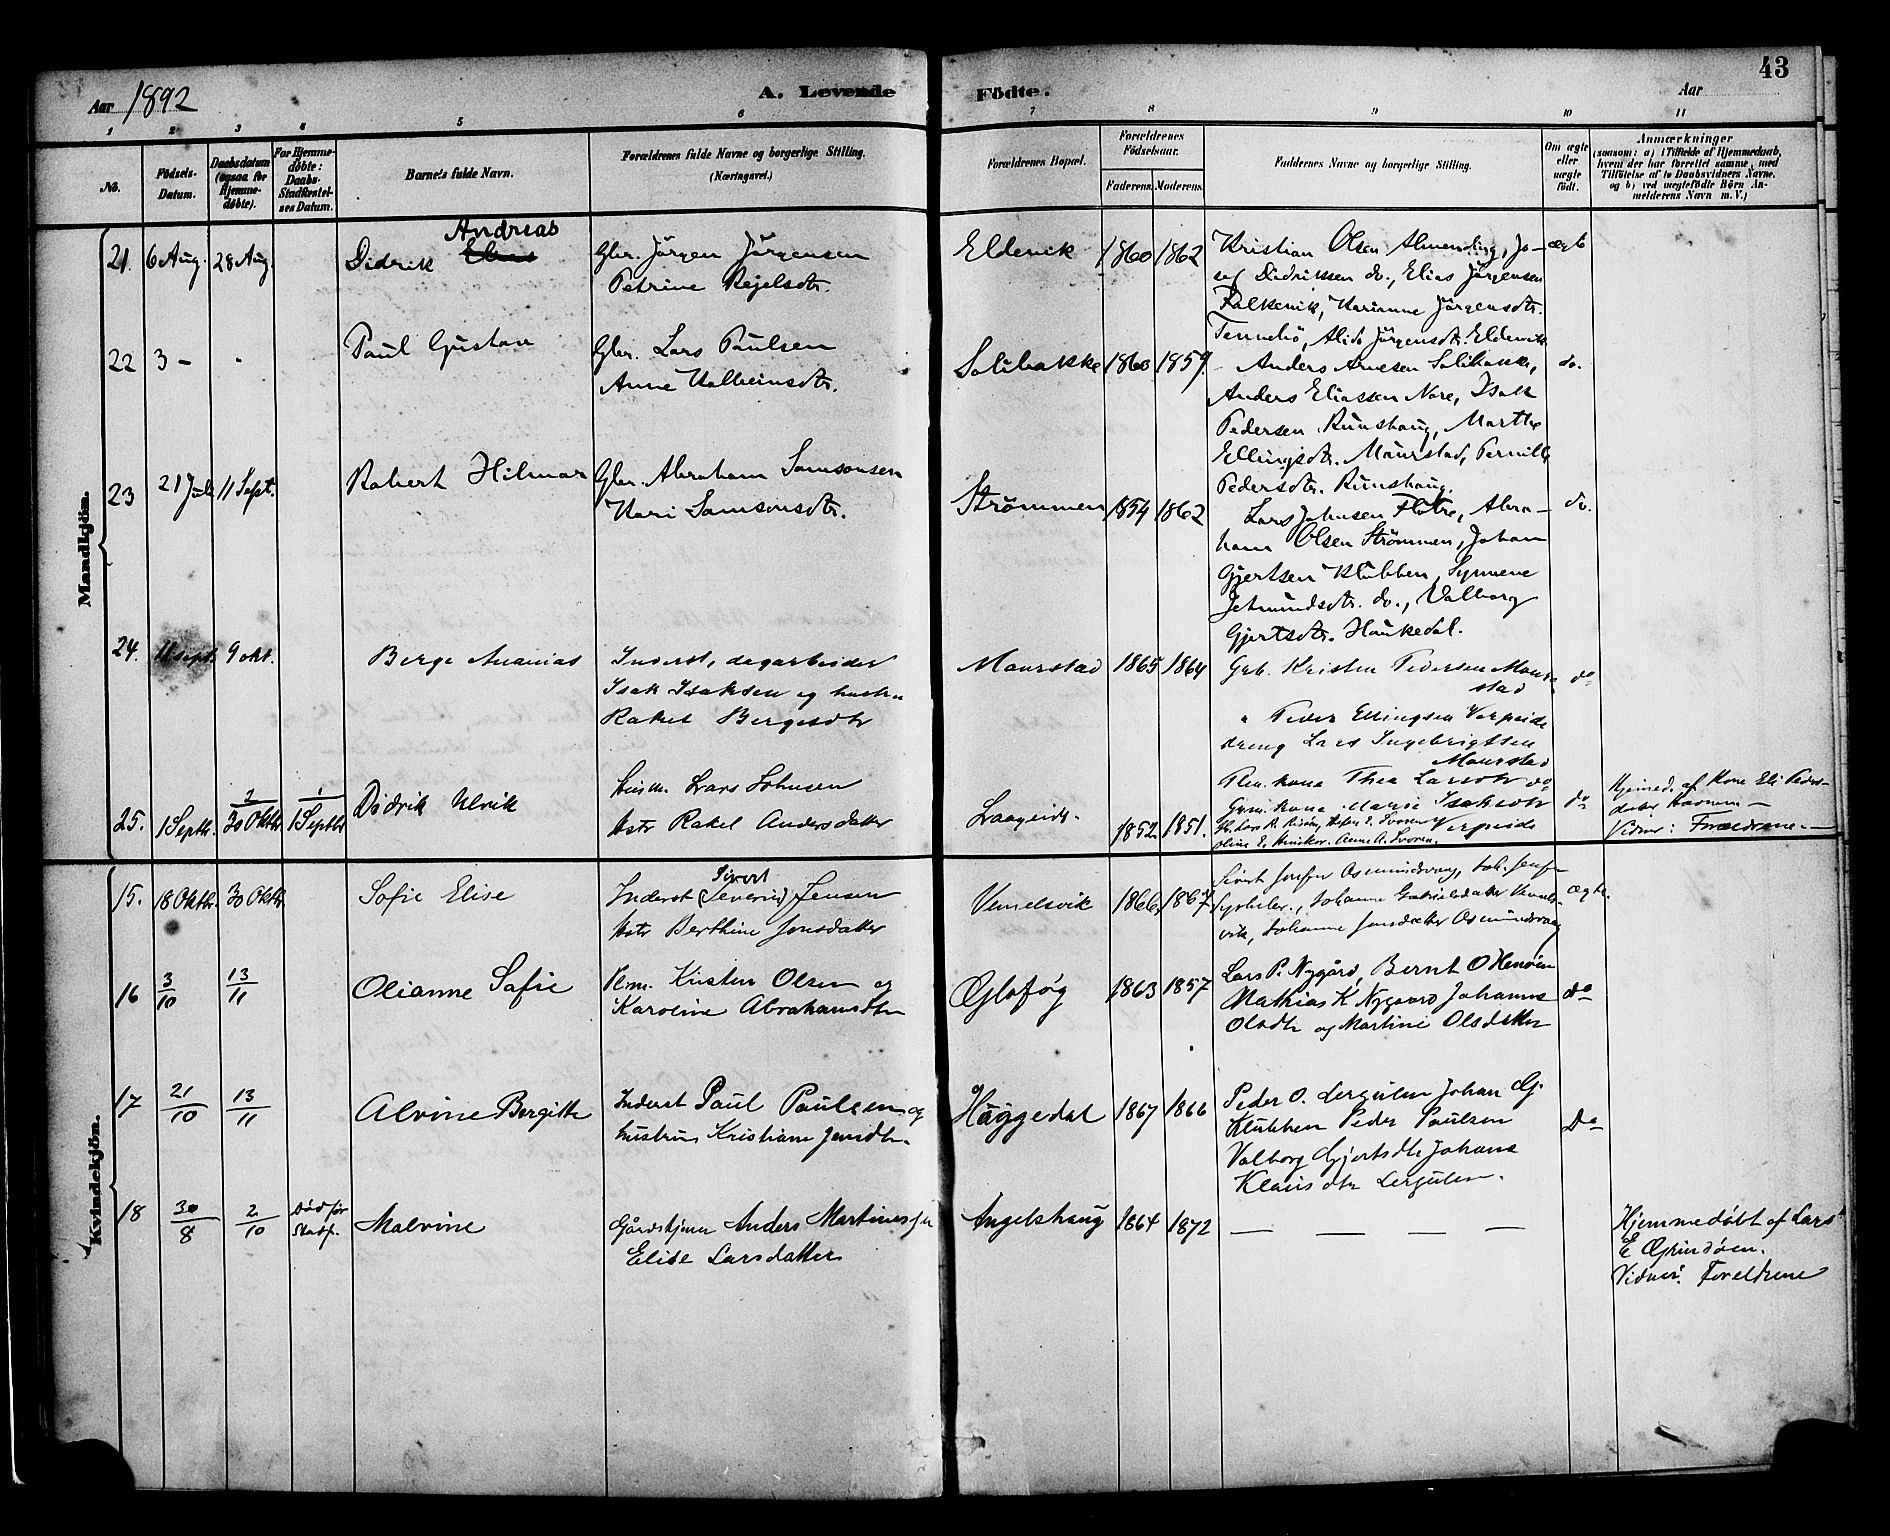 43
Aar 1892
A. Levende
Fødte.
Aar
1 2 3 4 5 6 7 8 9 10 11
No.
Fødsels-
Datum.
Daabsdatum
(ogsaa for
Hjemme-
døbte).
For Hjemme-
døbte:
Daabs-
Stadfæstel-
ses Datum.
Barnets fulde Navn.
Forældrenes fulde Navne og borgerlige Stilling.
(Næringsvei.)
Forældrenes Bopæl.
Forældrenes
Fødselsaar.
Faderens. Moderens.
Faddernes Navne og borgerlige Stilling.
Om ægte
eller
uægte
født.
Anmærkninger
(saasom: a) i Tilfælde af Hjemmedaab,
hvem der har forrettet samme, med
Tilføielse af to Daabsvidners Navne,
og b) ved uægtefødte Børn An-
melderens Navn m. V.)
Mandkjön.
21. 6 Aug. 28 Aug.
Andreas
Didrik Elias
Gbr. Jörgen Jörgensen
Petrine
Eldevik 1860 1862
Kristian Olsen Almending, Jo-
sef Didriksen do., Elias Jörgensen
Falkevik, Marianne Jörgensdtr.
Tennebö, Alida Jörgensdtr. Eldevik
ægte
22 3 -
Paul Gustav
Gbr. Lars Paulsen
Anne
Solibakke 1860 1859
Anders Arnesen Solibakke,
Anders Eliassen Nore, Isak
Pedersen Runshaug, Marthe
Ellingsdtr. Maurstad, Pernille
Pedersdtr. Runshaug.
do.
23 21 Juli 11 Sept.
Robert Hilmar
Gbr. Abraham Samsonsen
Kari Samsonsdtr.
Strömmen 1854 1862
Lars Johnsen Flötre, Abra-
ham Olsen Strömmen, Johan
Gjertsen Klubben, Synneve
Jetmundsdtr. do., Valborg
Gjertsdtr. Haukedal.
do.
24. 11 sept. 9 okt.
Berge Ananias
Inderst, dagarbeider
Isak Isaksen og hustru
Rakel Bergesdtr
Maurstad 1865 1864
Grb. Kristen Pedersen Maur-
stad
" Peder Ellingsen Verpeide
dreng Lars Ingebrigtsen
Maurstad
Pkn. kona Thea Larsdtr do
Grm. kona Marie Isaksdtr
Verpeide
do
25. 1 Septbr. 2/30 Oktbr. 1 Septbr
Didrik Ulrik
Husm. Lars Johnsen
Hstr Rakel Andersdatter
1852 1851.
Anne A. Svoren.
do
Hjemmed. af Kone Eli Peders-
datter
Vidner: Forældrene
Kvindekjön.
15. 18 Oktbr. 30 Oktbr.
Sofie Elise
Sivert
Inderst (Severin) Jensen
Hstr Berthine Jonsdatter
Vemelsvik 1866 1867
Sivert Josefsen Osmundsvaag,
Johanne Gabrielsdatter Vemels-
vik, Johanne Jonsdatter Osmundsvaag
ægte.
16 3/10 13/11
Olianne Sofie
Plm. Kristen Olsen og
Karoline Abrahamsdtr
Oglofög 1863 1857
Lars P. Nygård, Bernt O Henöen
Mathias K Nygaard Johanne
Olsdtr og Martine Olsdatter
do
17 21/10 13/11
Alvine Bergitte
Inderst Paul Paulsen og
hustru Kristiane Jensdtr.
Haggedal 1867 1866
Peder O. Lergulen Johan Gj.
Klubben Peder Paulsen
Valborg Gjertsdtr Johane
Klausdtr Lergulen.
Do
18 30/8 2/10 Död för
Stadf.
Malvine
Gårdstjener Anders Martinussen
Elise Larsdatter
Angelshaug 1864 1872
— — — —
Hjemmedöbt af Lars
E
Vidner: Foreldrene